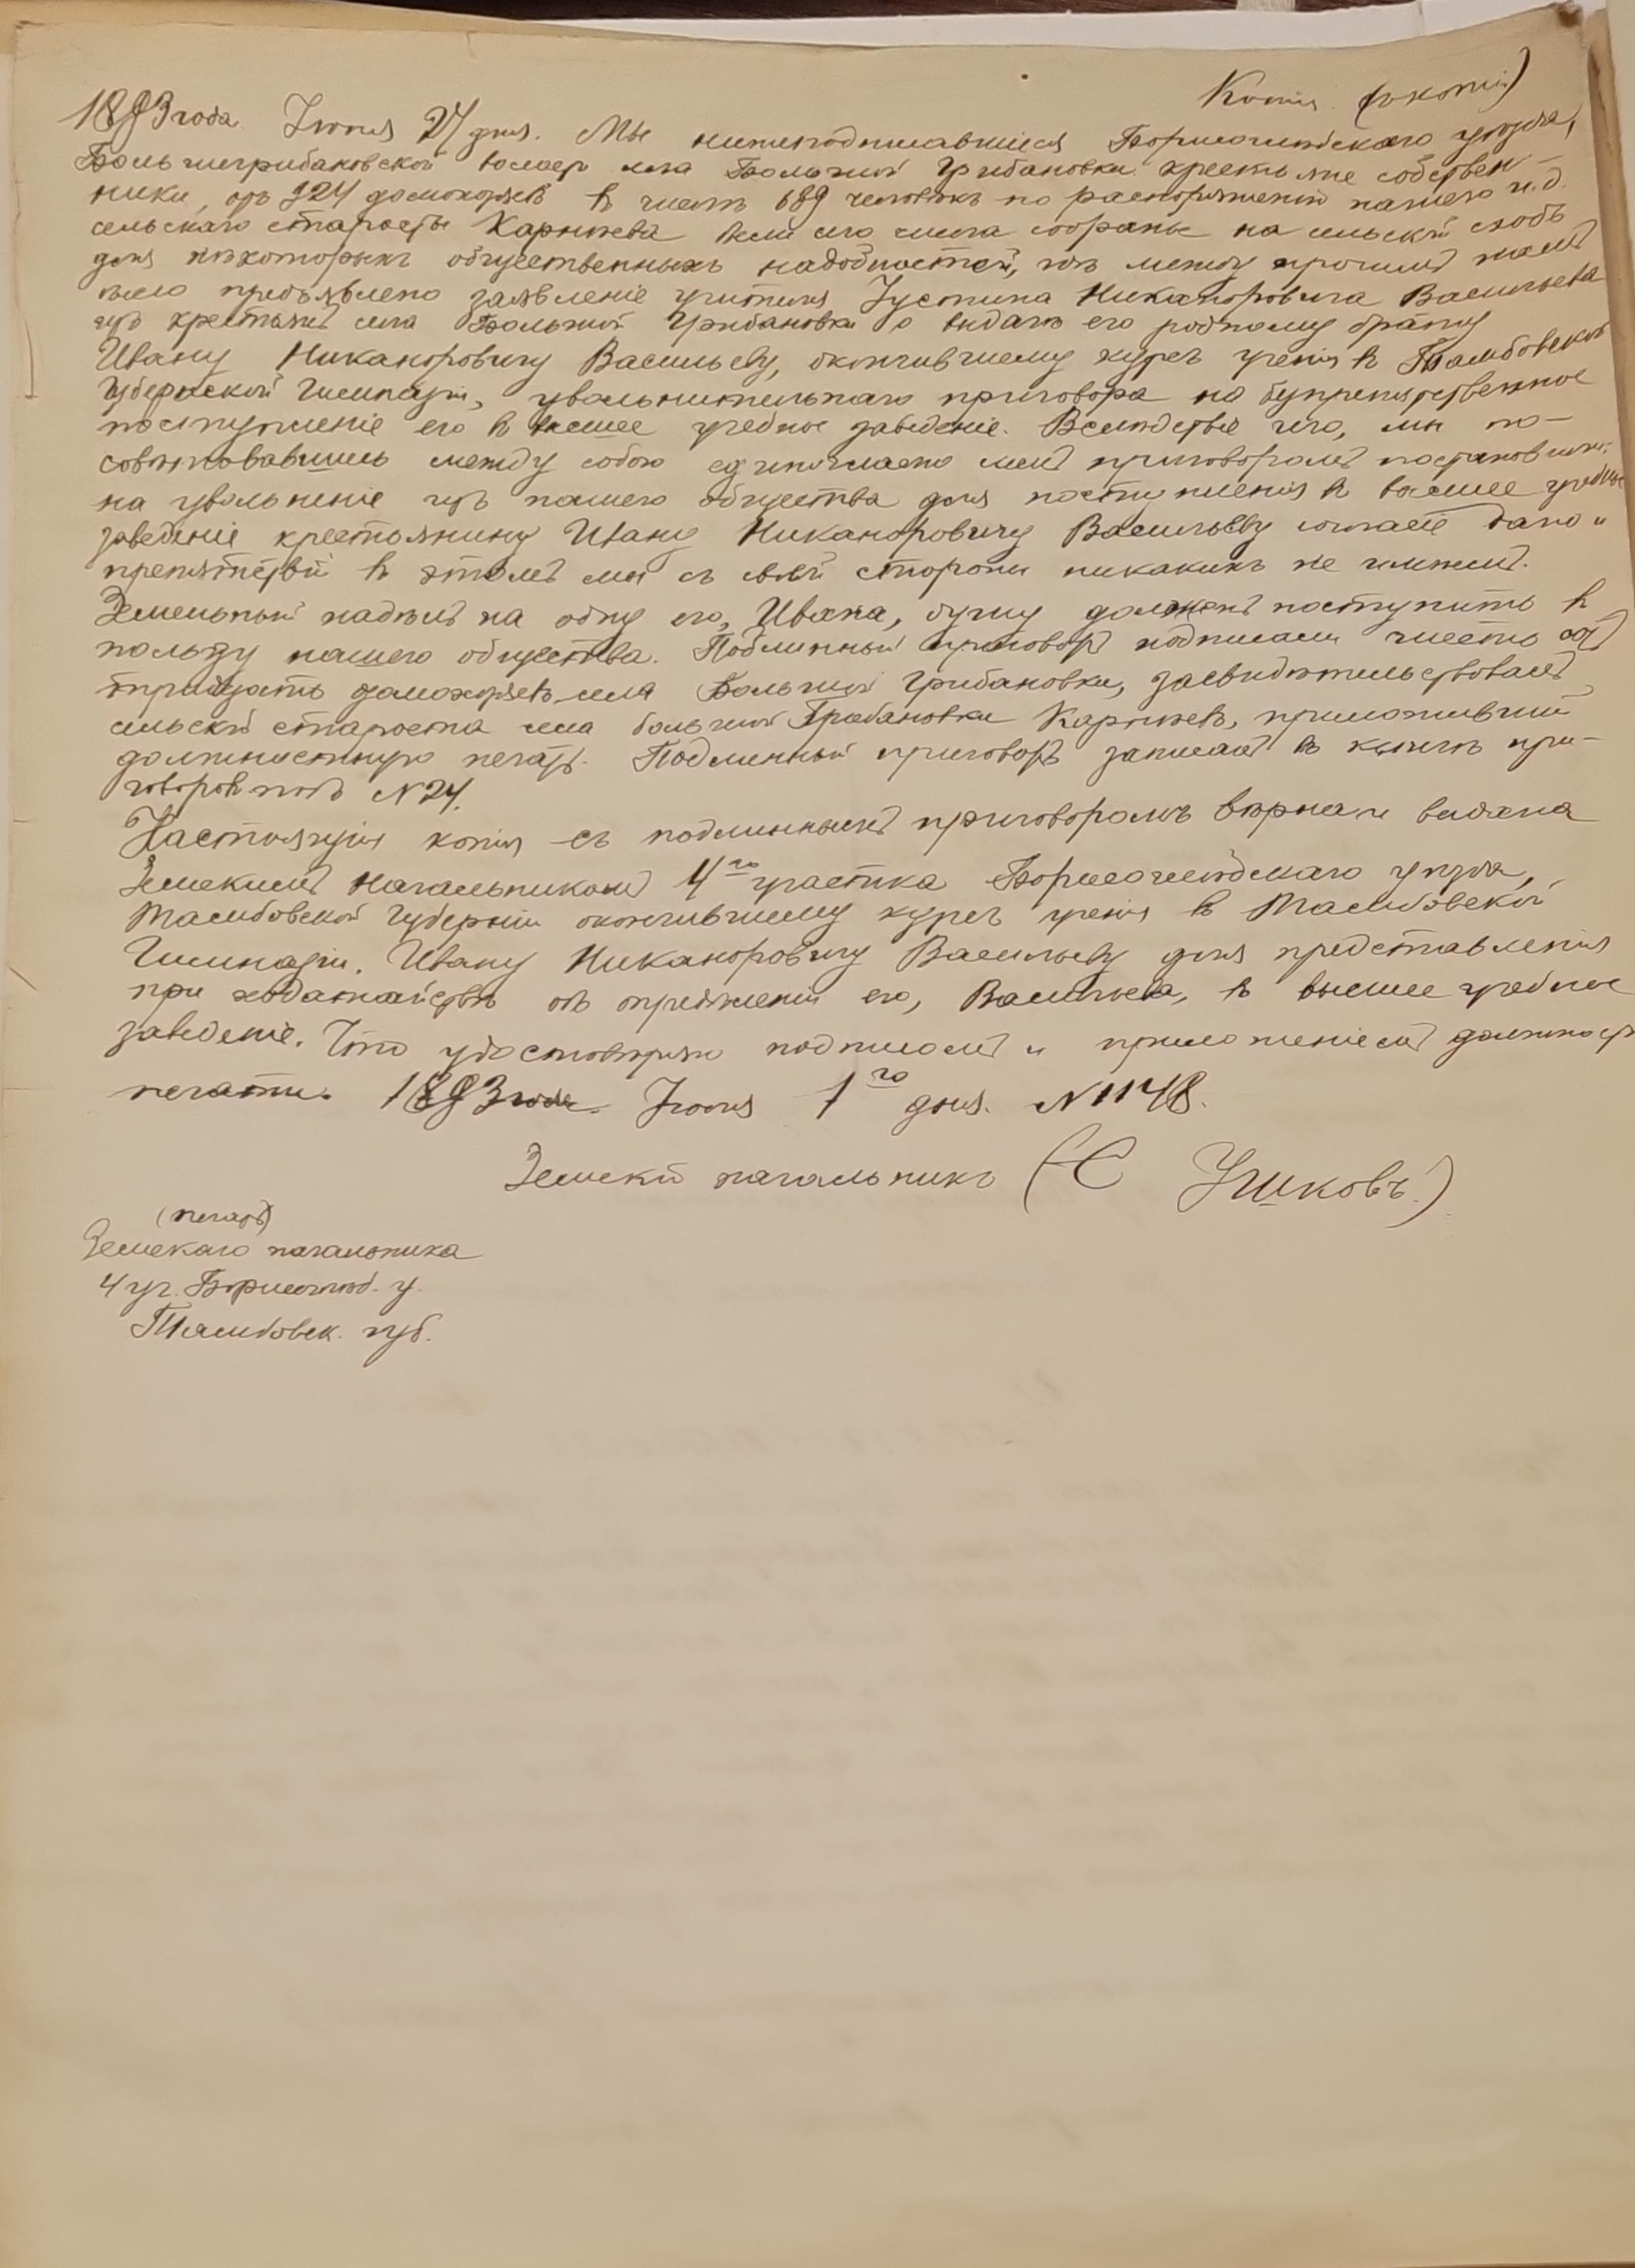 Копія (съ копіи)
1893 года Іюня 27 дня. Мы нижеподписавшіеся Борисоглѣбскаго уѣзда,
Больше-грибановской волости села Большой Грибановки крестьяне собствен-
ники, отъ 924 домохозяевъ въ числѣ 689 человѣкъ по распоряженію нашего и. д.
сельскаго старосты Карпѣева сего числа собраны на сельскій сходъ
для нѣкоторыхъ общественныхъ надобностей, гдѣ между прочимъ намъ
было предъявлено заявленіе учителя Іустина Никаноровича Васильева
изъ крестьянъ села Большой Грибановки о выдачѣ его родному брату
Ивану Никаноровичу Васильеву, окончившему курсъ ученія въ Тамбовской
Губернской Гимназіи, увольнительнаго приговора на безпрепятственное
поступленіе его въ высшее учебное заведеніе. Вслѣдствіе чего, мы по-
совѣтовавшись между собою единогласно симъ приговоромъ постановили:
на увольненіе изъ нашего общества для поступленія въ высшее учебное
заведеніе крестьянину Ивану Никаноровичу Васильеву согласіе дано и
препятствій въ этомъ мы съ своей стороны никакихъ не имѣемъ.
Земельный надѣлъ на одну его, Ивана, душу долженъ поступить въ
пользу нашего общества. Подлинный приговоръ подписали шестьсотъ
тридцать домохозяевъ села Большой Грибановки, засвидѣтельствовалъ
сельскій староста села большой Грибановки Карпѣевъ, приложившій
должностную печать. Подлинный приговоръ записанъ въ книгѣ при-
говоровъ подъ № 24.
Настоящая копія съ подлиннымъ приговоромъ вѣрна и выдана
Земскимъ Начальникомъ 4го участка Борисоглѣбскаго уѣзда,
Тамбовской Губерніи окончившему курсъ ученія въ Тамбовской
Гимназіи, Ивану Никаноровичу Васильеву для представленія
при ходатайствѣ объ опредѣленіи его, Васильева, въ высшее учебное
заведеніе. Что удостовѣряю подписомъ и приложеніемъ должност
печати. 1893 года Іюля 1го дня. № 1148.
Земскій начальникъ (С Ушковъ.)
(печать)
Земскаго начальника
4 уч. Борисоглѣб. у.
Тамбовск. губ.